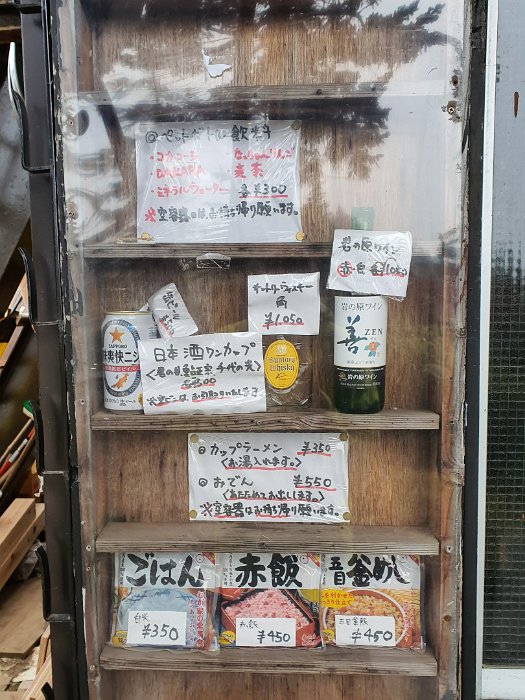 ◎ペットボトル飲料
・コカコーラ ・なっちゃんりんご
・DAKARA ・麦茶
・ミネラルウォーター 各¥300
※空容器はお持ち帰り願います。
岩の原ワイン
赤・白 各¥1,050
サントリーウィスキー
角
¥1,050
岩の原ワイン
善 ZEN
岩の原ワイン
SAPPORO
爽快ニシ
日本酒ワンカップ
千代の光
¥500
Suntory
Whisky
◎カップラーメン ¥350
〈お湯入れます。〉
◎おでん ¥550
〈あたためてお出しします。〉
※空容器はお持ち帰り願います。
ごはん
赤飯
五目釜めし
白米
¥350
赤飯
¥450
五目釜飯
¥450